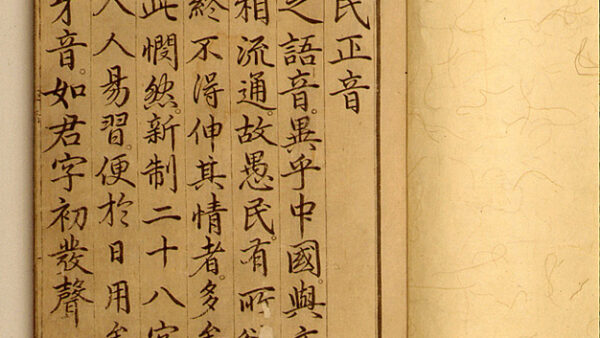 民正音
之語音。異乎中國。與文
相流通。故愚民。有所欲
終不得伸其情者。多矣
此憫然。新制二十八字
人人易習。便於日用矣
牙音。如君字初發聲